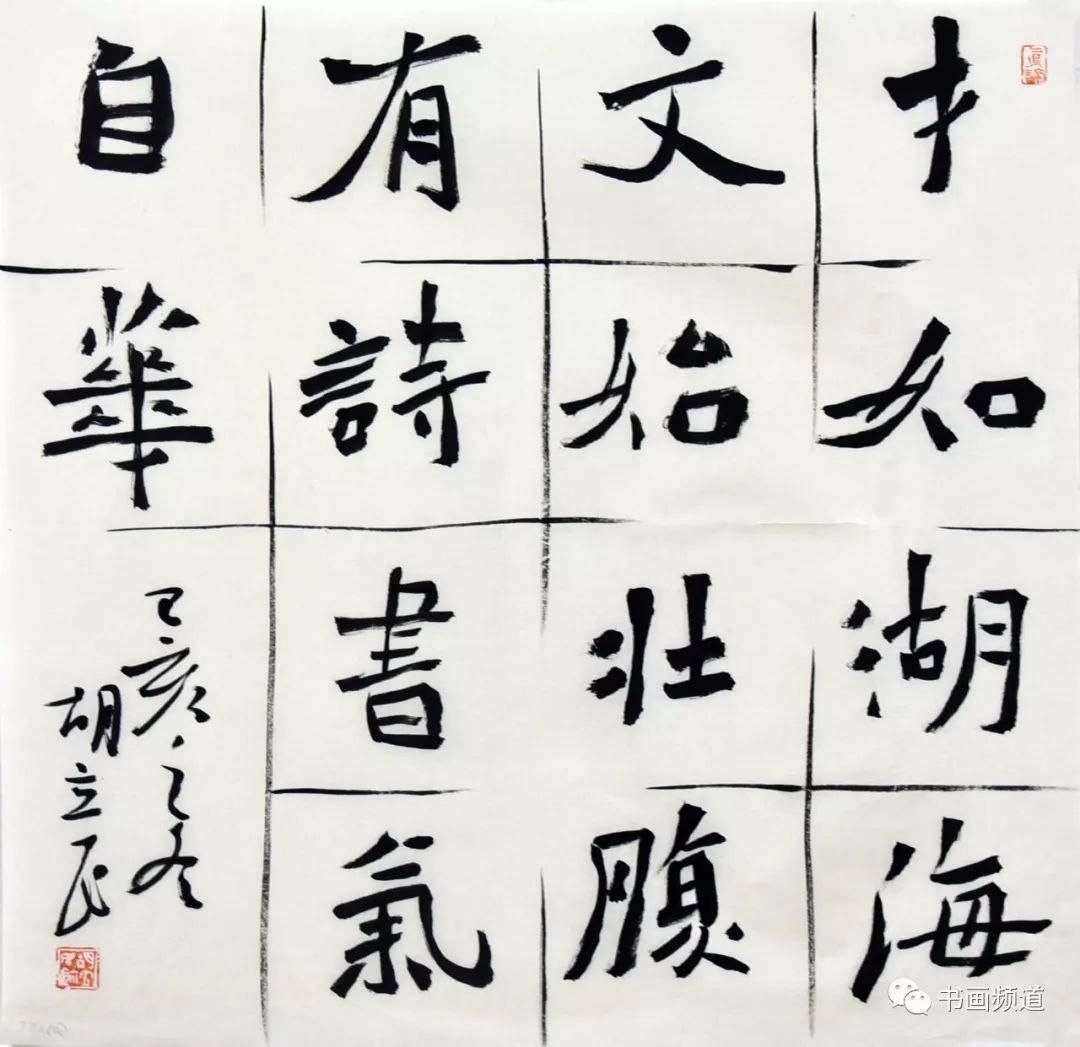 才如湖海
文始壮腹
有詩書氣
自華
己亥之冬
胡立民
书画频道